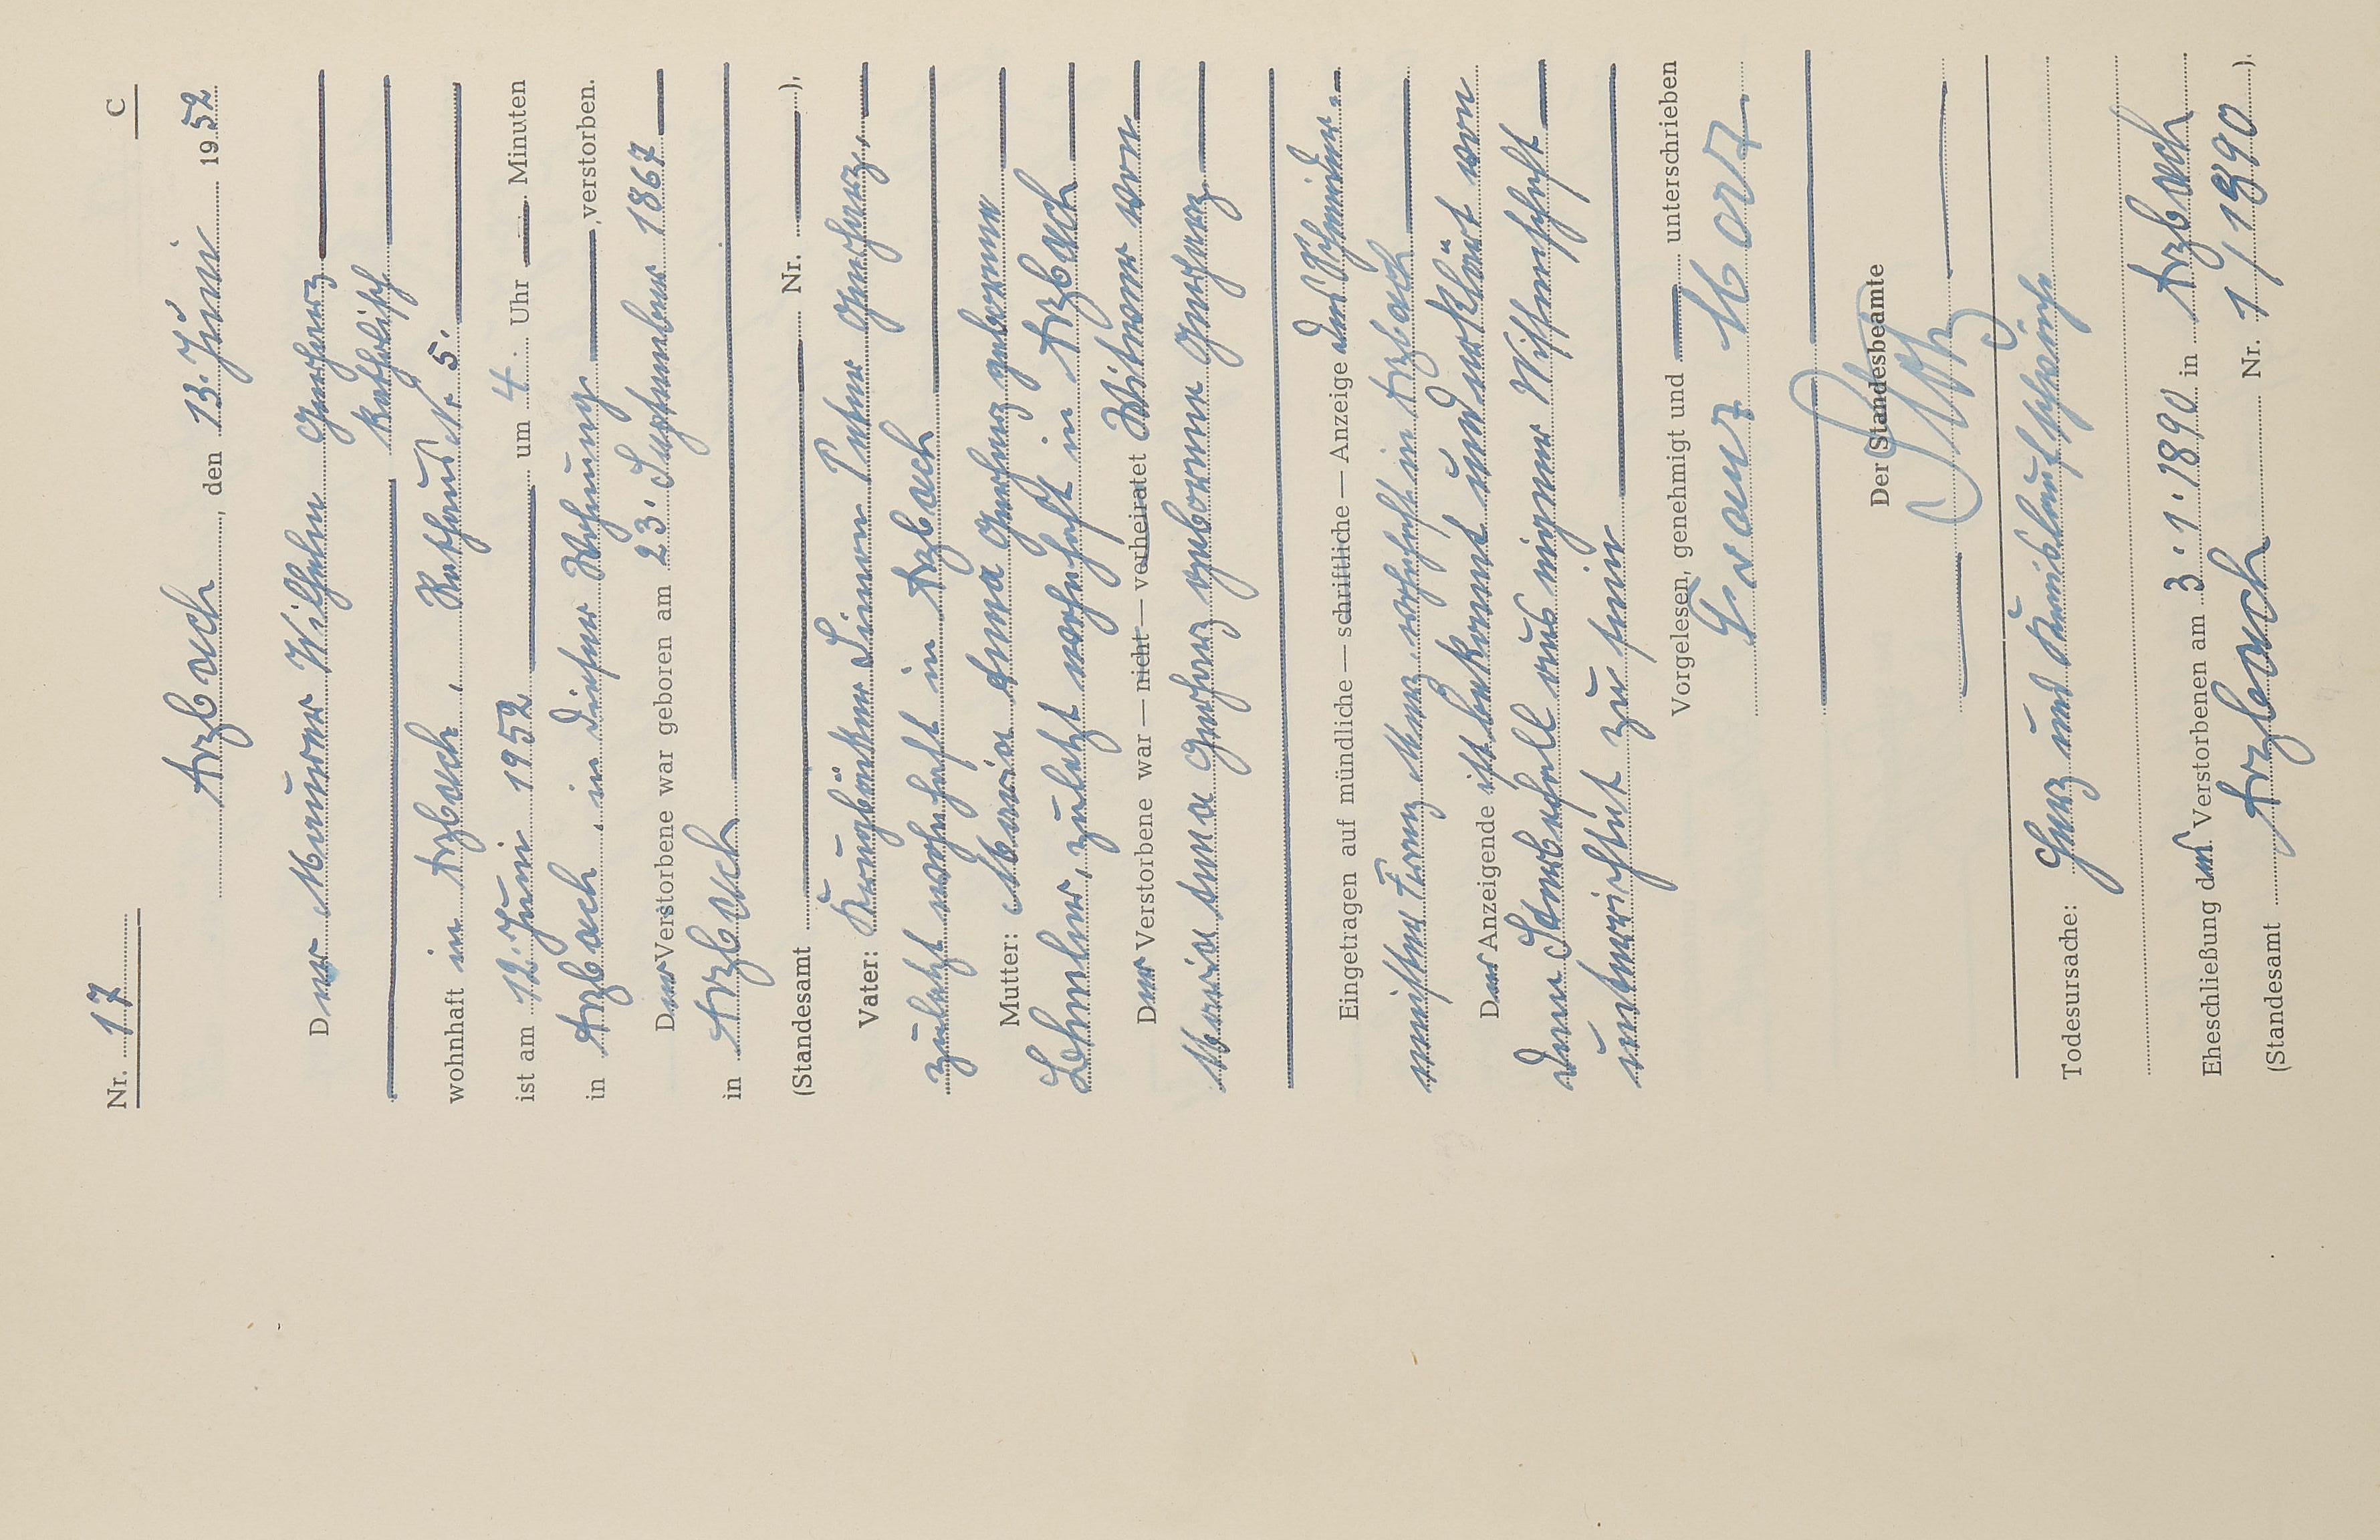 Nr. 17 C
Arzbach, den 13. Juni 1952
Der Maurer Wilhelm Gerharz
katholisch
wohnhaft in Arzbach, Rathausstr. 5.
ist am 12. Juni 1952 um 4 Uhr Minuten
in Arzbach, in dieser Wohnung, verstorben.
Der Verstorbene war geboren am 23. September 1867
in Arzbach
(Standesamt Nr. ),
Vater: Krugbäcker Simon Peter Gerharz,
zuletzt wohnhaft in Arzbach
Mutter: Maria Anna Gerharz geborene
zuletzt wohnhaft in Arzbach
Der Verstorbene war — nicht — verheiratet Witwer von
Maria Anna Gerharz geborene Gerharz.
Eingetragen auf mündliche — schriftliche — Anzeige des Schreiner-
meisters Franz wohnhaft in Arzbach
Der Anzeigende ist bekannt und erklärt von
dem Sterbefall aus eigener Wissenschaft
unterrichtet zu sein
Vorgelesen, genehmigt und unterschrieben
Franz
Der Standesbeamte
Todesursache: Herz und Kreislaufschwäche
Eheschließung des Verstorbenen am 3. 1. 1890 in Arzbach
(Standesamt Arzbach Nr. 1/1890).